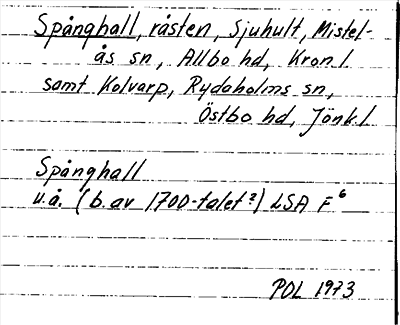 Spånghall, råsten, Sjuhult, Mistel-
ås sn, Allbo hd, Kron.l.
samt Kolvarp, Rydaholms sn,
Östbo hd, Jönk.l.
Spånghall
u.å. (b. av 1700-talet?) LSA F⁶
POL 1973